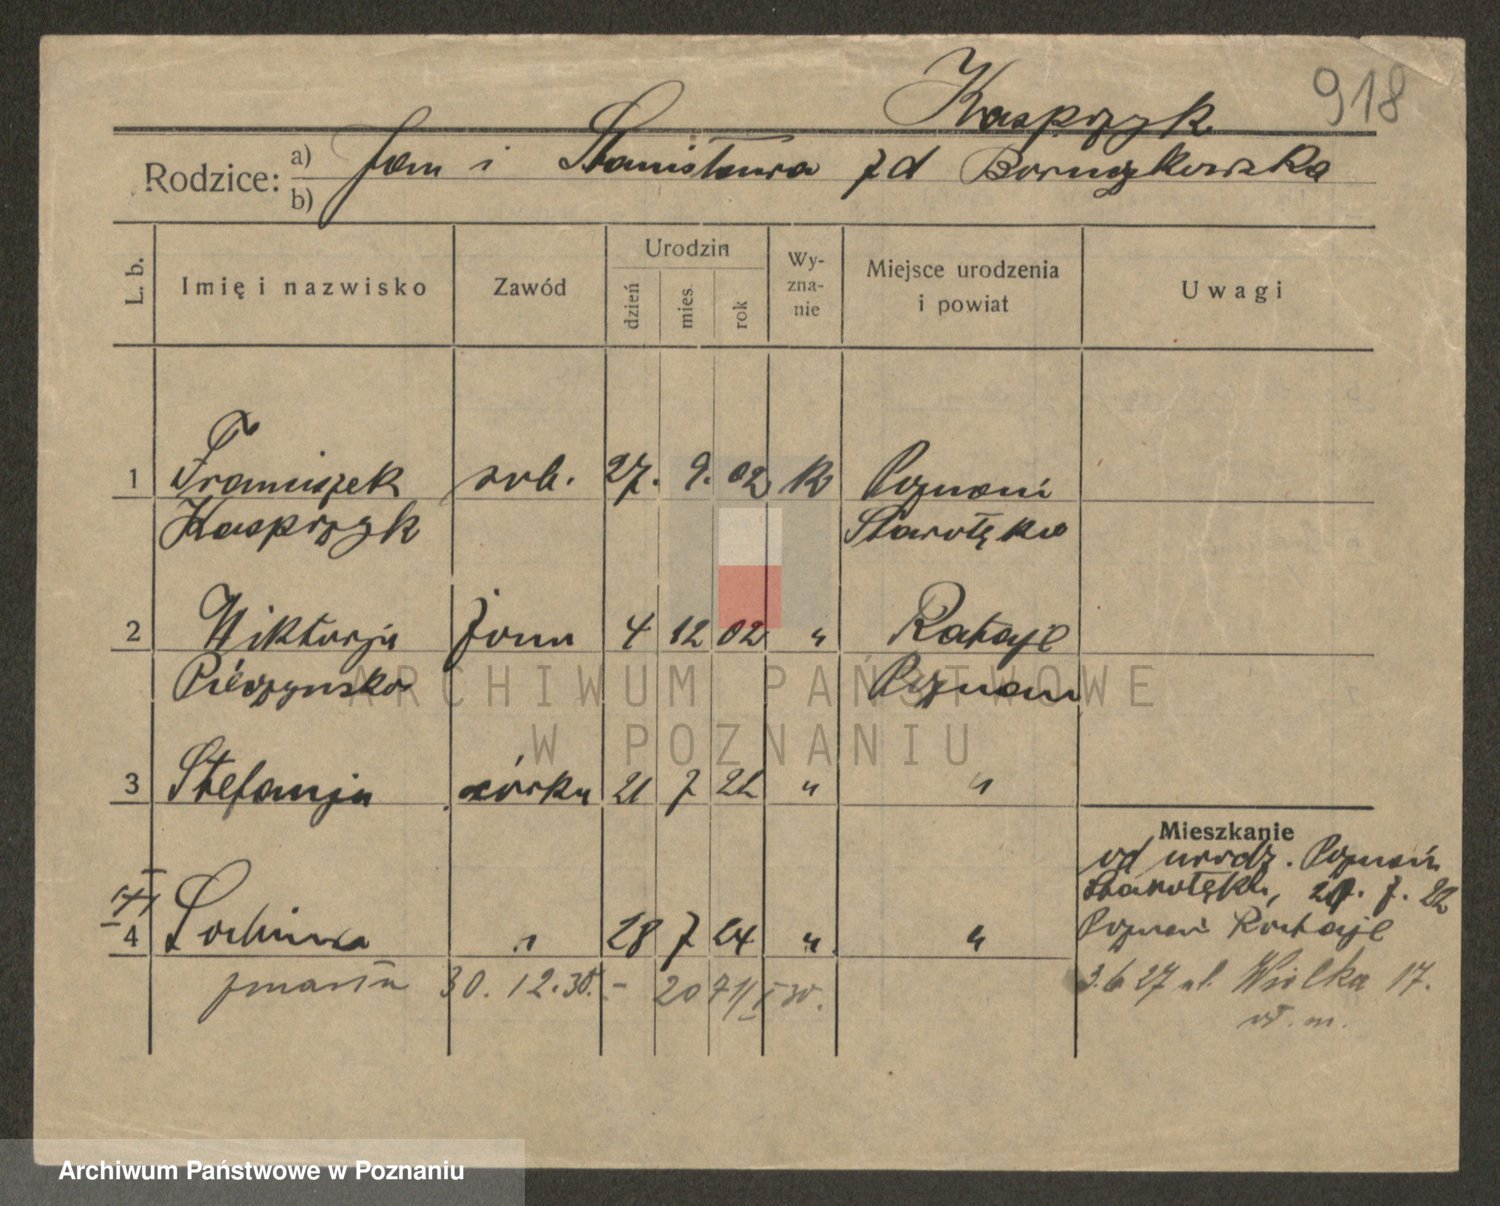 Kasprzyk 918
Rodzice: a) Jan i Stanisława z d Boruczkowska
b)
L. b. Imię i nazwisko Zawód Urodzin dzień mies. rok Wy-zna-nie Miejsce urodzenia i powiat Uwagi
1 Franciszek rob. 27. 9. 02 K Poznań
Kasprzyk Starołęka
2 Wiktorja żona 4 12 02 " Rataje
Pieczyńska Poznań
3 Stefanja córka 21 7 22 " "
Mieszkanie
od urodz. Poznań
Starołęka, 7. 22
4 " 28 7 24 " " Poznań Rataje
zmarła 30. 12. 30. - 3.6 27 ul. Wielka 17.
wł. m.
ARCHIWUM PAŃSTWOWE
W POZNANIU
Archiwum Państwowe w Poznaniu